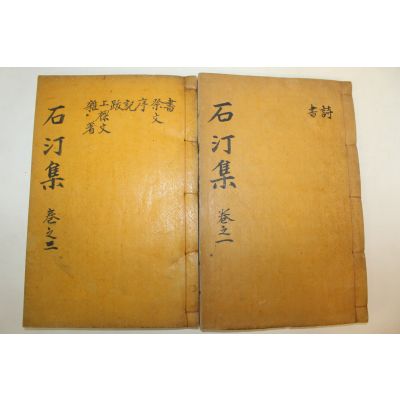 石汀集
卷之一
詩
書
石汀集
卷之二
書
祭文
序
記
跋
上樑文
雜著